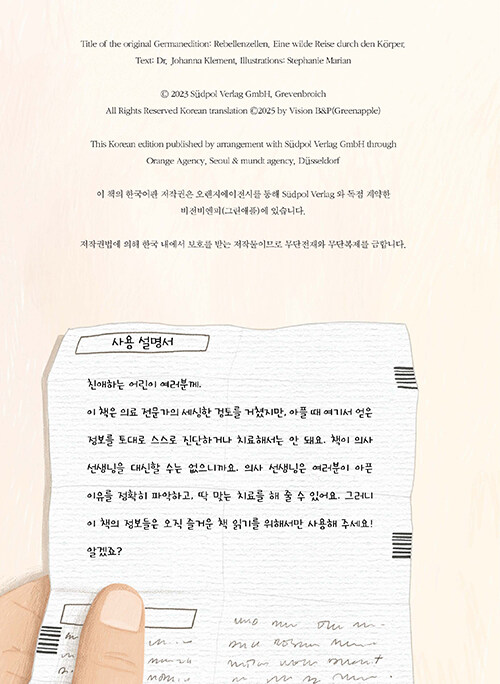 Title of the original Germanedition: Rebellenzellen, Eine wilde Reise durch den Körper,
Text: Dr, Johanna Klement, Illustrations: Stephanie Marian
© 2023 Südpol Verlag GmbH, Grevenbroich
All Rights Reserved Korean translation ©2025 by Vision B&P(Greenapple)
This Korean edition published by arrangement with Südpol Verlag GmbH through
Orange Agency, Seoul & mundt agency, Düsseldorf
이 책의 한국어판 저작권은 오렌지에이전시를 통해 Südpol Verlag 와 독점 계약한
비전비엔피(그린애플)에 있습니다.
저작권법에 의해 한국 내에서 보호를 받는 저작물이므로 무단전재와 무단복제를 금합니다.
사용 설명서
친애하는 어린이 여러분께.
이 책은 의료 전문가의 세심한 검토를 거쳤지만, 아플 때 여기서 얻은
정보를 토대로 스스로 진단하거나 치료해서는 안 돼요. 책이 의사
선생님을 대신할 수는 없으니까요. 의사 선생님은 여러분이 아픈
이유를 정확히 파악하고, 딱 맞는 치료를 해 줄 수 있어요. 그러니
이 책의 정보들은 오직 즐거운 책 읽기를 위해서만 사용해 주세요!
알겠죠?